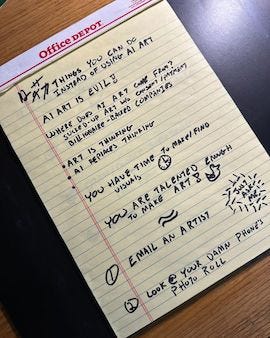 Office DEPOT
THINGS YOU CAN DO
INSTEAD OF USING AI ART
AI ART IS EVIL!
WHERE DOES AI ART COME FROM?
BILLIONAIRE-BACKED COMPANIES
• ART IS THINKING
• AI REPLACES THINKING
YOU HAVE TIME TO MAKE/FIND
VISUALS
YOU ARE TALENTED ENOUGH
TO MAKE ART!
① EMAIL AN ARTIST
② LOOK @ YOUR DAMN PHONE'S
PHOTO ROLL